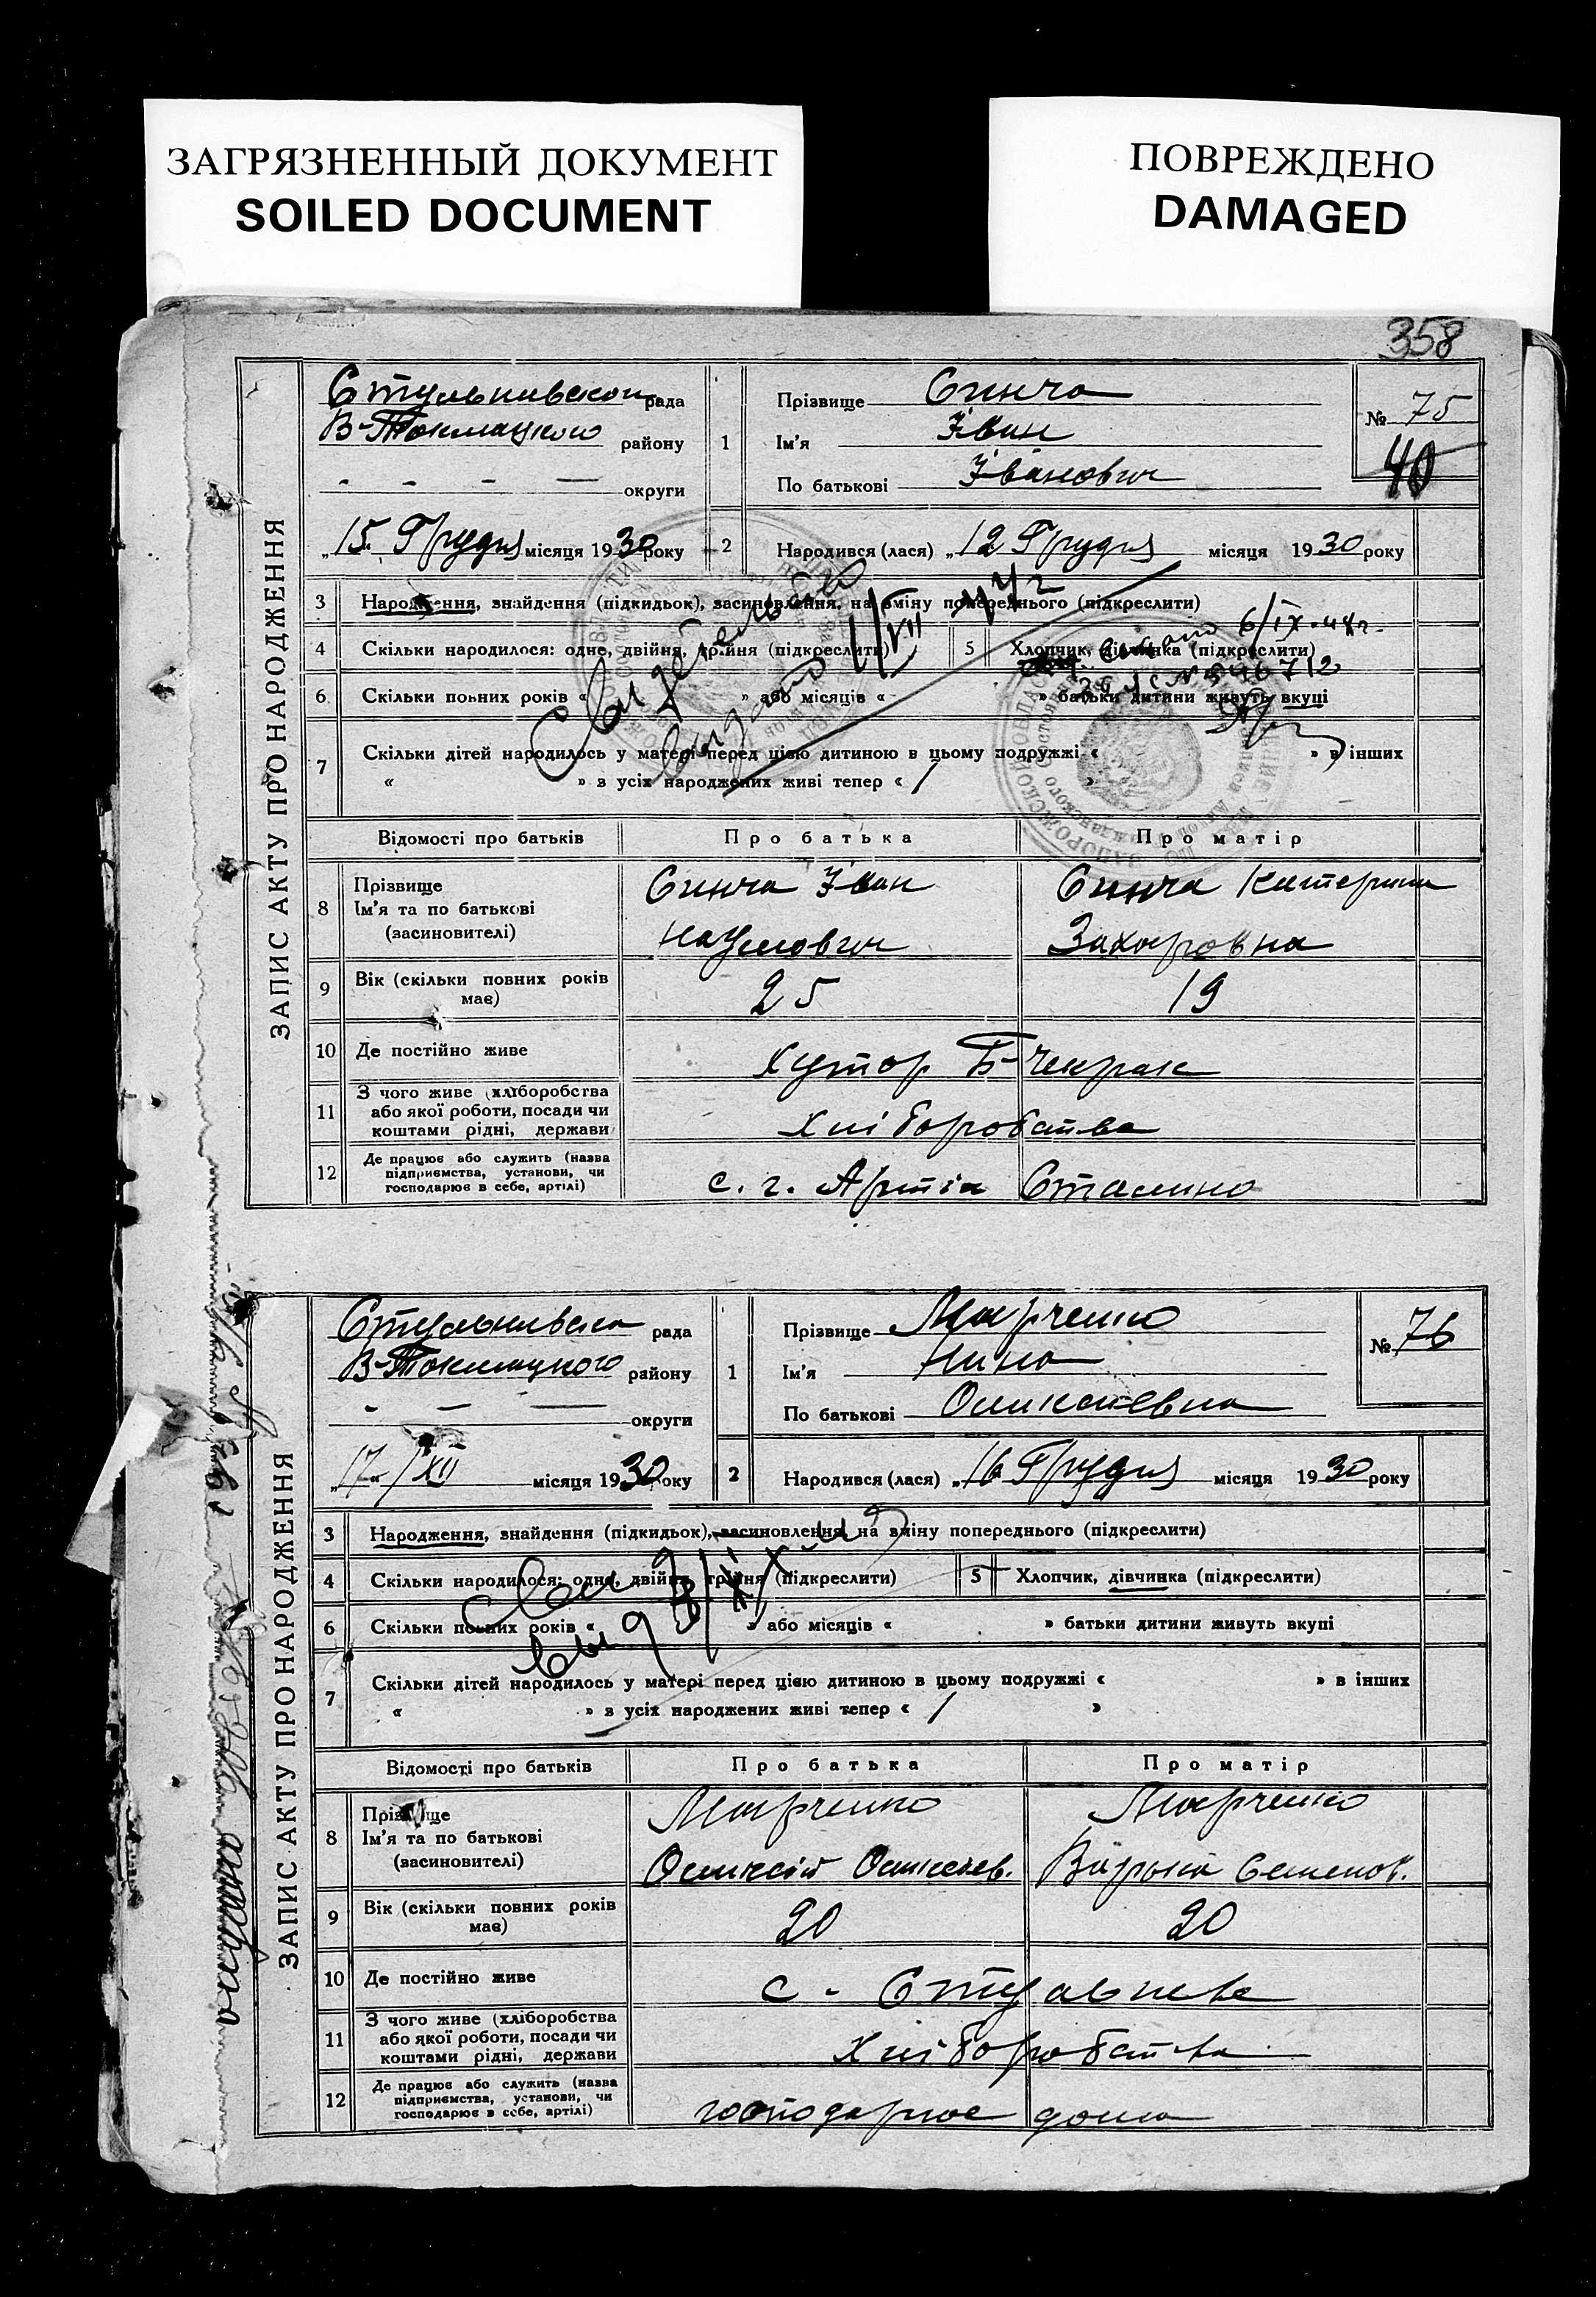 ЗАГРЯЗНЕННЫЙ ДОКУМЕНТ
SOILED DOCUMENT
ПОВРЕЖДЕНО
DAMAGED
358
ЗАПИС АКТУ ПРО НАРОДЖЕННЯ
рада
В-Токмацкого району
- - - — округи
1
Прізвище
Ім'я Іван
По батькові Іванович
№ 75
40
„15" Грудня місяця 1930 року
2 Народився (лася) „12 Грудня місяця 1930 року
3 Народження, знайдення (підкидьок), засиновлення, на зміну попереднього (підкреслити)
4 Скільки народилося: одне, двійня, трійня (підкреслити)
5 Хлопчик, дівчинка (підкреслити)
6/IX-48г.
6 Скільки повних років « » або місяців « » батьки дитини живуть вкупі
7 Скільки дітей народилось у матері перед цією дитиною в цьому подружжі « » в інших
« » з усіх народжених живі тепер « 1 »
Відомості про батьків
Про батька
Про матір
8 Прізвище
Ім'я та по батькові
(засиновителі)
Іван
Наумович
Катерина
Захаровна
9 Вік (скільки повних років має)
25
19
10 Де постійно живе
Хутор Б-Чекрак
11 З чого живе (хліборобства
або якої роботи, посади чи
коштами рідні, держави
Хліборобства
12 Де працює або служить (назва
підприємства, установи, чи
господарює в себе, артілі)
с. г. Артіл Сталино
ЗАПИС АКТУ ПРО НАРОДЖЕННЯ
рада
В-Токмацкого району
- — — округи
1
Прізвище Марченко
Ім'я Нина
По батькові Олексіевна
№ 76
„17" / XII місяця 1930 року
2 Народився (лася) „16 Грудня місяця 1930 року
3 Народження, знайдення (підкидьок), засиновлення, на зміну попереднього (підкреслити)
4 Скільки народилося: одне, двійня, трійня (підкреслити)
5 Хлопчик, дівчинка (підкреслити)
6 Скільки повних років « » або місяців « » батьки дитини живуть вкупі
7 Скільки дітей народилось у матері перед цією дитиною в цьому подружжі « » в інших
« » з усіх народжених живі тепер « 1 »
Відомості про батьків
Про батька
Про матір
8 Прізвище
Ім'я та по батькові
(засиновителі)
Марченко
Олексій Олексіев.
Марченко
Семенов.
9 Вік (скільки повних років має)
20
20
10 Де постійно живе
с - Стульнева
11 З чого живе (хліборобства
або якої роботи, посади чи
коштами рідні, держави
Хліборобства
12 Де працює або служить (назва
підприємства, установи, чи
господарює в себе, артілі)
господарює дома